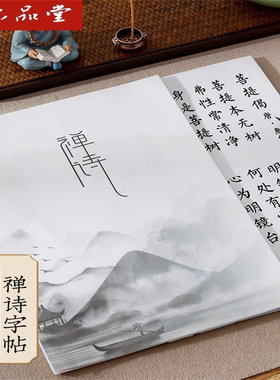 品堂
禅诗
菩提偈 唐
菩提本无树 明
佛性常清净 何处有
身是菩提树 心为明镜台
禅诗字帖